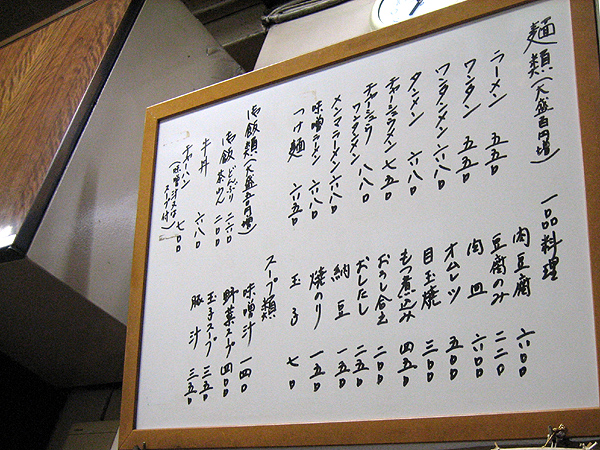 麺類(大盛百円増)
ラーメン 五五〇
ワンタン 五五〇
ワンタンメン 六八〇
タンメン 六八〇
チャーシューメン 七五〇
チャーシュウワンタンメン 八八〇
メンマラーメン 六八〇
味噌ラーメン 六八〇
つけ麺 六五〇
御飯類(大盛五〇円増)
御飯 どんぶり 二六〇
茶わん
牛丼 六八〇
チャーハン 七〇〇
(味噌汁又はスープ付)
一品料理
肉豆腐 六〇〇
豆腐のみ 二二〇
肉皿 六〇〇
オムレツ 五〇〇
目玉焼 三〇〇
もつ煮込み 四五〇
おのし合え 二〇〇
おしたし 二五〇
納豆 一五〇
焼のり 一五〇
玉子 七〇
スープ類
味噌汁 一四〇
野菜スープ 四〇〇
玉子スープ 三五〇
豚汁 三五〇